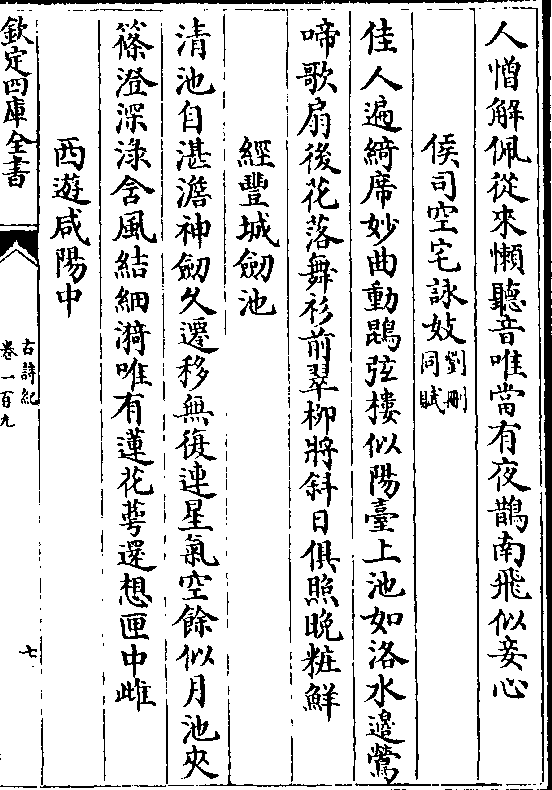 人憎解佩從來懶聽音唯當有夜鵲南飛似妾心
侯司空宅詠妓劉刪同賦
佳人遍綺席妙曲動鵾弦樓似陽臺上池如洛水邊鶯
啼歌扇後花落舞衫前翠柳將斜日俱照晩粧鮮
經豐城劒池
清池自湛澹神劒久遷移無復連星氣空餘似月池夾
篠澄深淥含風結細漪唯有蓮花萼還想匣中雌
西遊咸陽中
欽定四庫全書
古詩紀
卷一百九
七